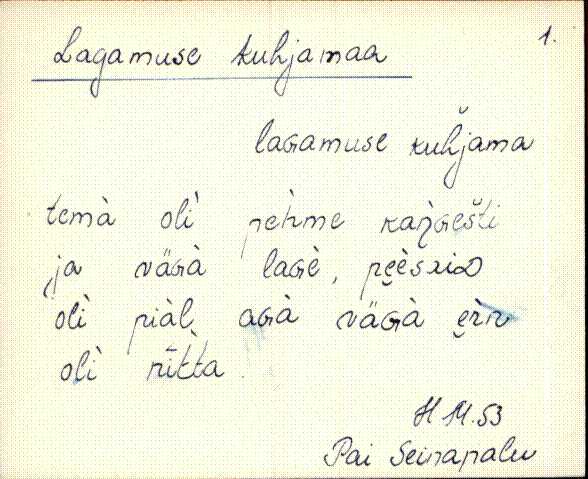 Lagamuse kuhjamaa
1.
laGamuse kuȟjama
temà olì pehme kaŋ̀Gešti
ja väGà laGè, pe̮è̮sxiD
olì piàl, aGà väGà e̮ìn
olì nītta
H 14.53
Pai Seinapalu